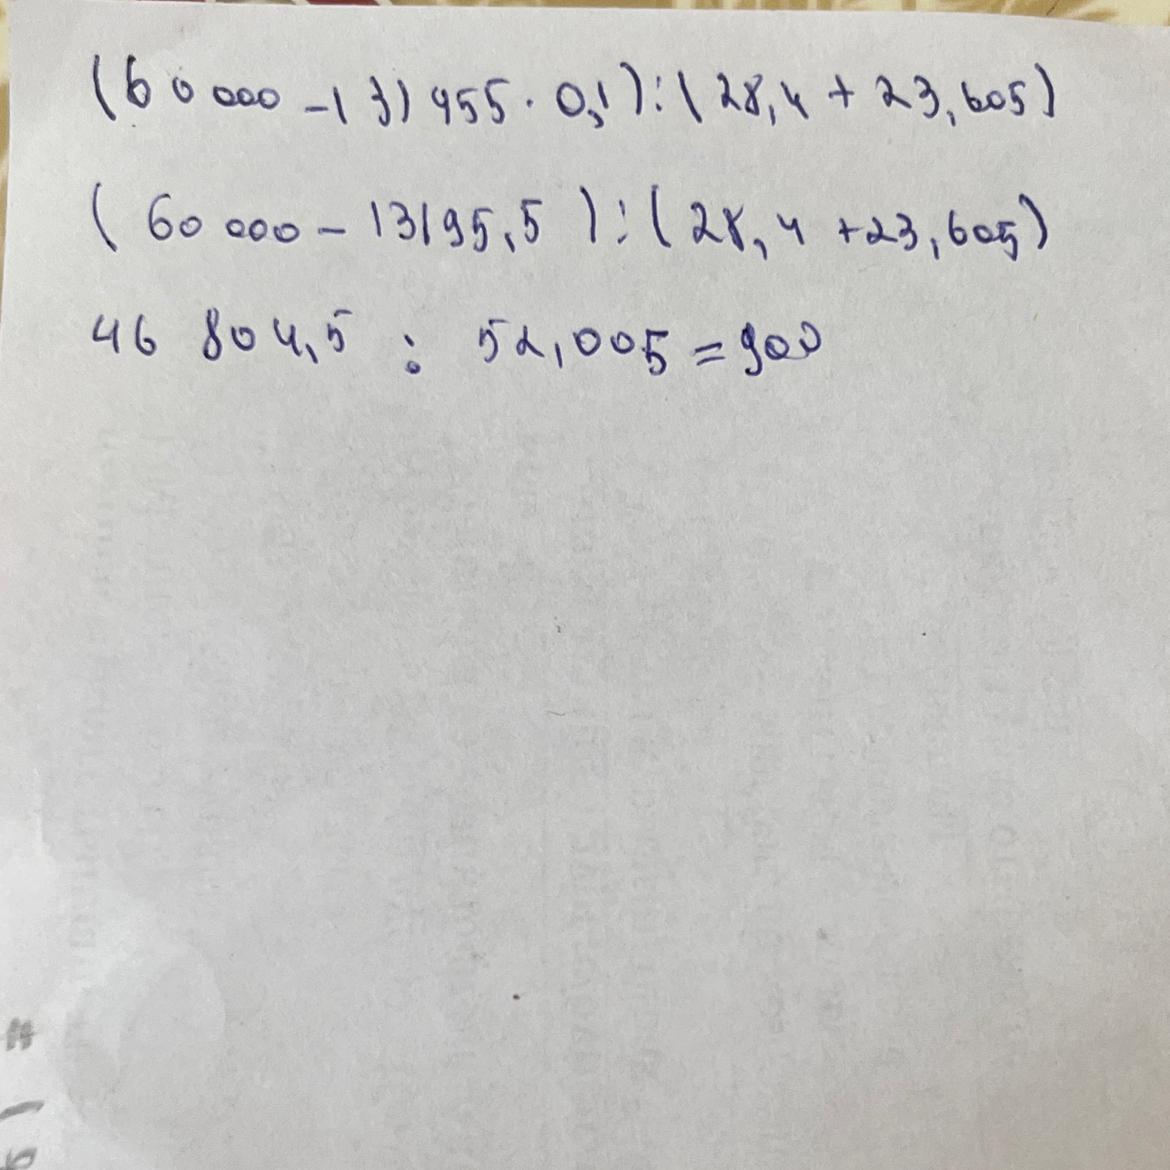 (60 000 - 131 955 · 0,1) : (28,4 + 23,605)
(60 000 - 13195,5) : (28,4 + 23,605)
46 804,5 : 52,005 = 900